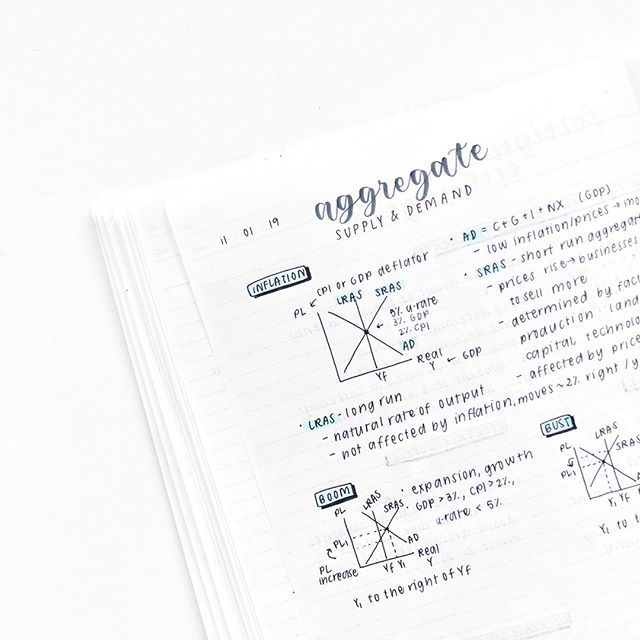 aggregate
SUPPLY & DEMAND
11 01 19
INFLATION
CPI or GDP deflator
PL
LRAS
SRAS
5% u-rate
3% GDP
2% CPI
AD
Real
Y ← GDP
Yf
LRAS - long run
- natural rate of output
- not affected by inflation, moves ~2% right / y
• AD = C+G+I+NX (GDP)
- low inflation/prices → mo
• SRAS - short run aggregat
- prices rise → businesses
to sell more
- determined by fac
production: land
capital, technolo
- affected by price
BOOM
• expansion, growth
GDP > 3%, CPI > 2%,
u-rate < 5%
PL
LRAS
SRAS
PL1
AD
Real
Y
Yf Y1
PL
increase
Y1 to the right of Yf
BUST
PL
LRAS
SRAS
PL1
Y1 Yf
Y1 to t